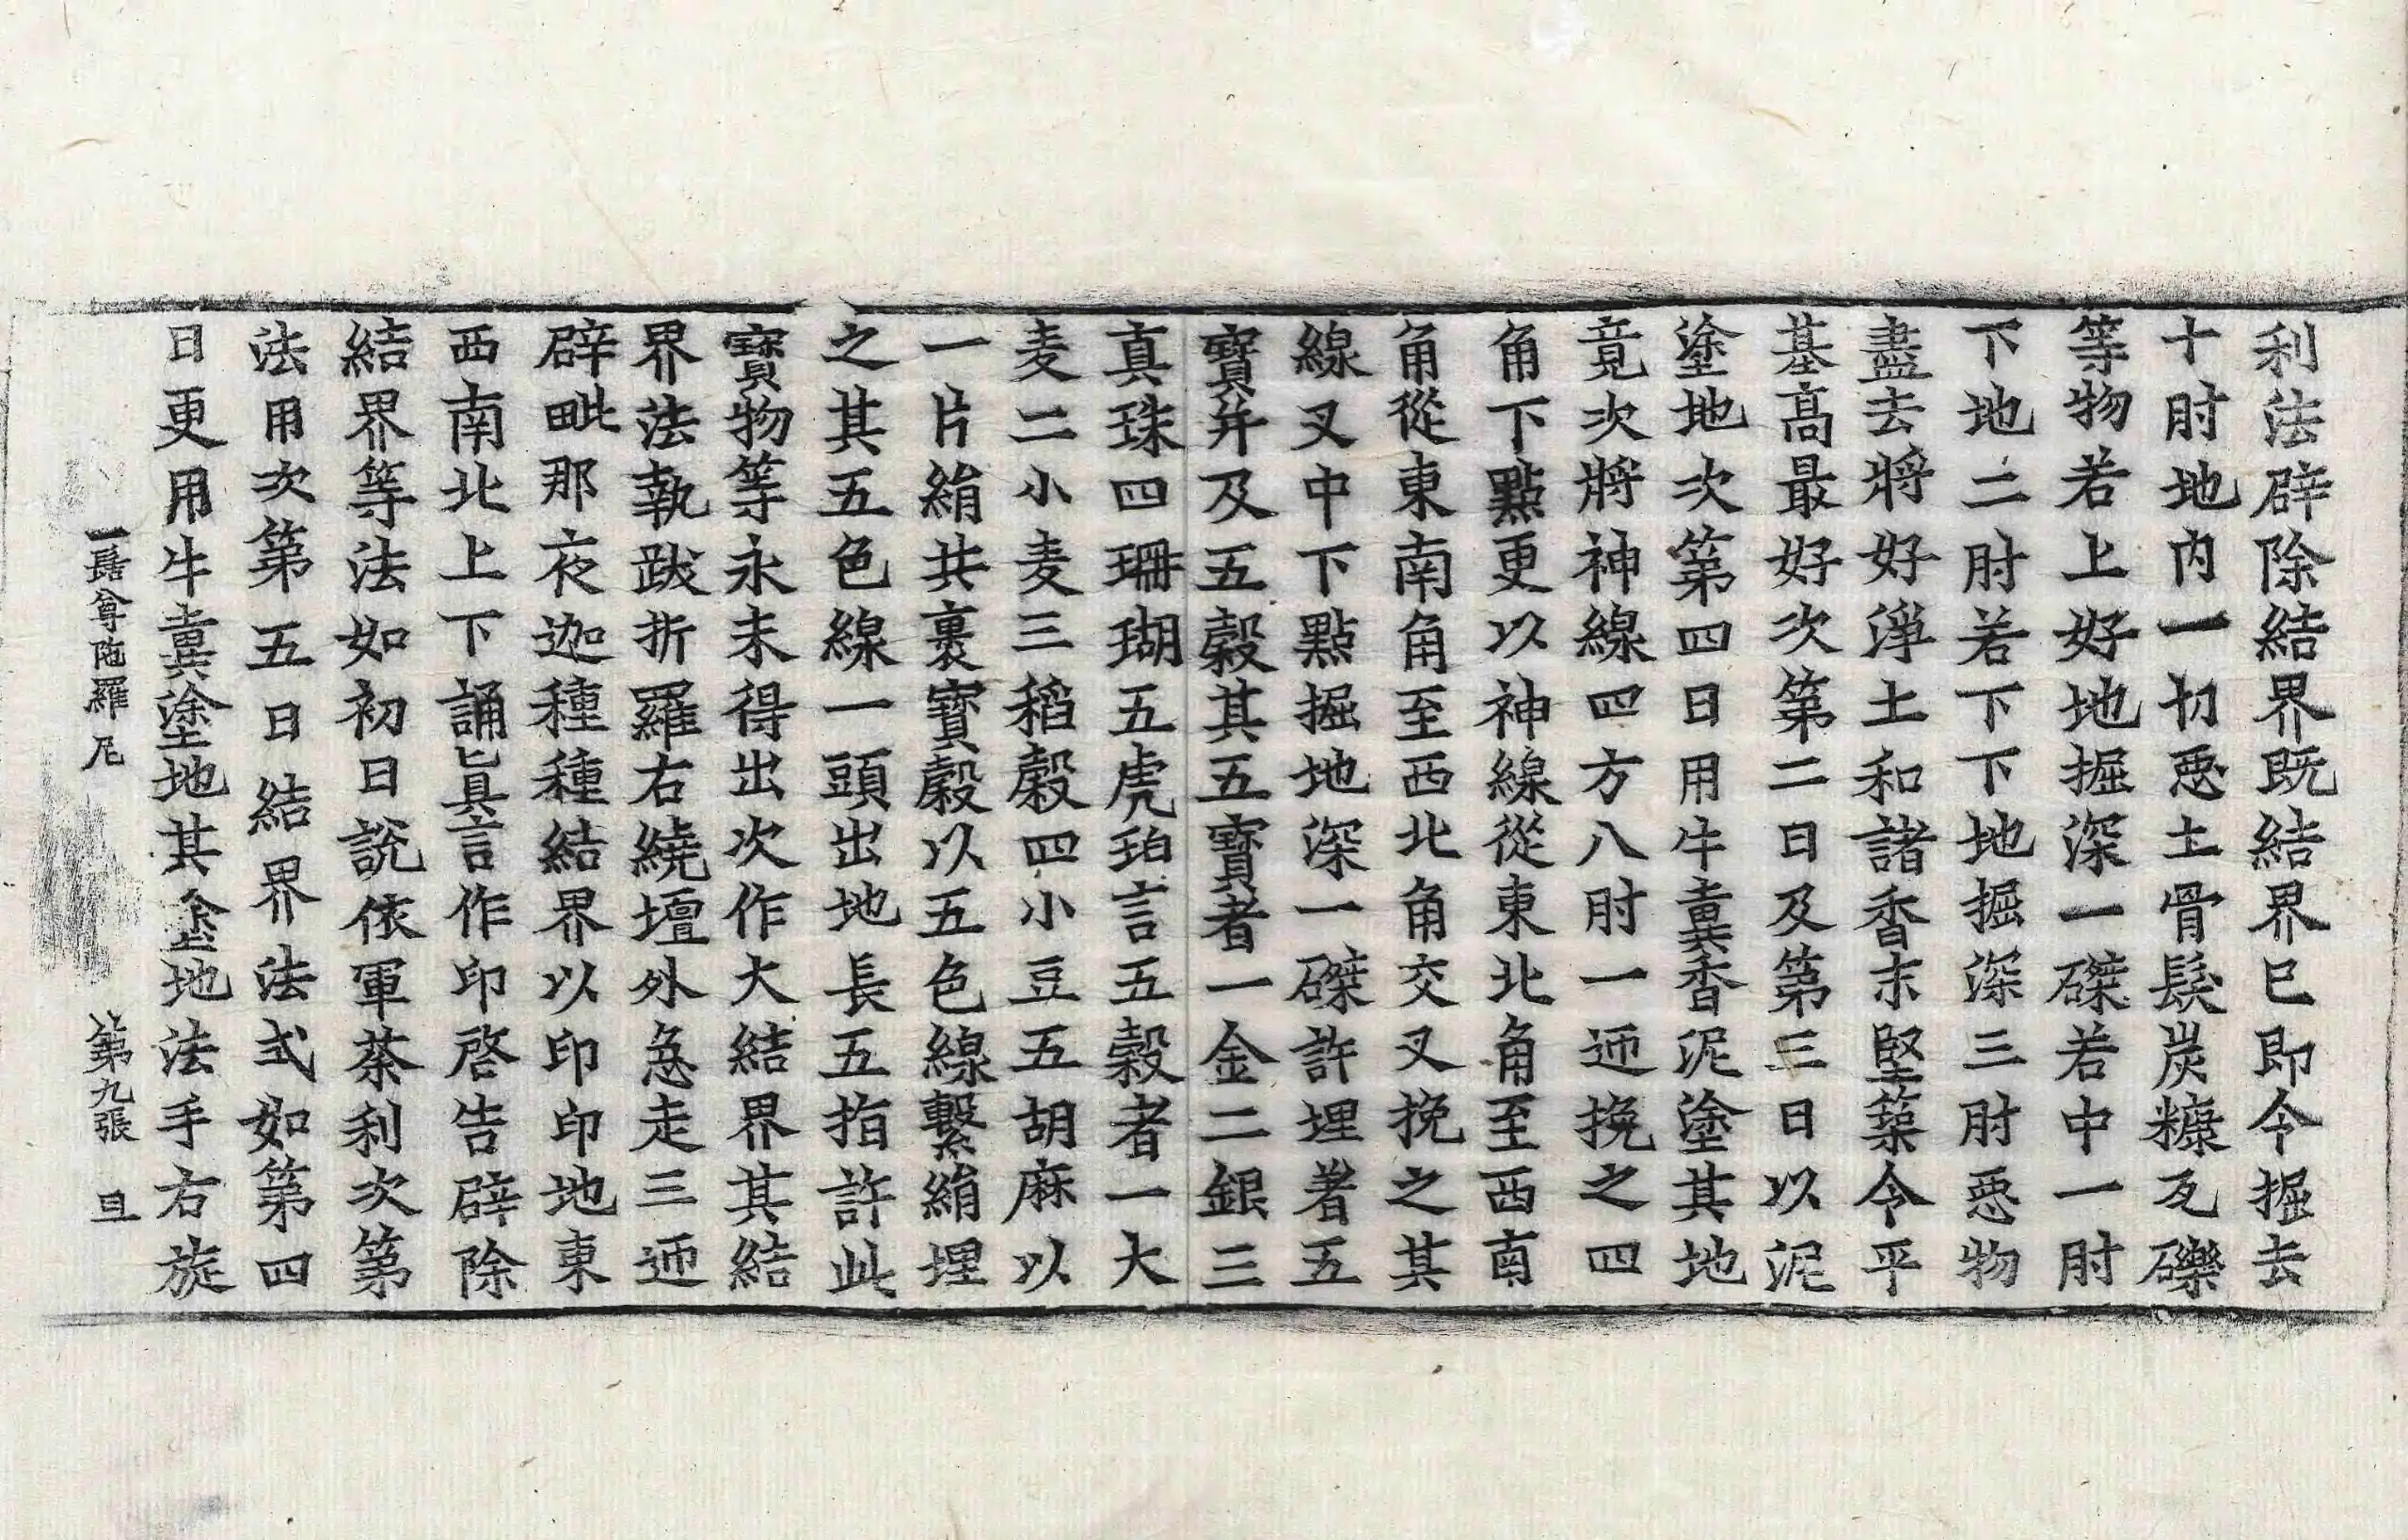 利法辟除結界既結界已即令掘去
十肘地内一切惡土骨髮炭糠瓦礫
等物若上好地掘深一磔若中一肘
下地二肘若下下地掘深三肘惡物
盡去將好淨土和諸香末堅築令平
基高最好次第二日及第三日以泥
塗地次第四日用牛糞香泥塗其地
竟次將神線四方八肘一迊挽之四
角下點更以神線從東北角至西南
角從東南角至西北角交叉挽之其
線叉中下點掘地深一磔許埋著五
寶并及五穀其五寶者一金二銀三
真珠四珊瑚五虎珀言五穀者一大
麦二小麦三稻穀四小豆五胡麻以
一片絹共裹寶穀以五色線繫絹埋
之其五色線一頭出地長五指許此
寶物等永未得出次作大結界其結
界法執跋折羅右繞壇外急走三迊
辟毗那夜迦種種結界以印印地東
西南北上下誦真言作印啓告辟除
結界等法如初日說依軍茶利次第
法用次第五日結界法式如第四
日更用牛糞塗地其塗地法手右旋
一髻尊陁羅尼 第九張 旦